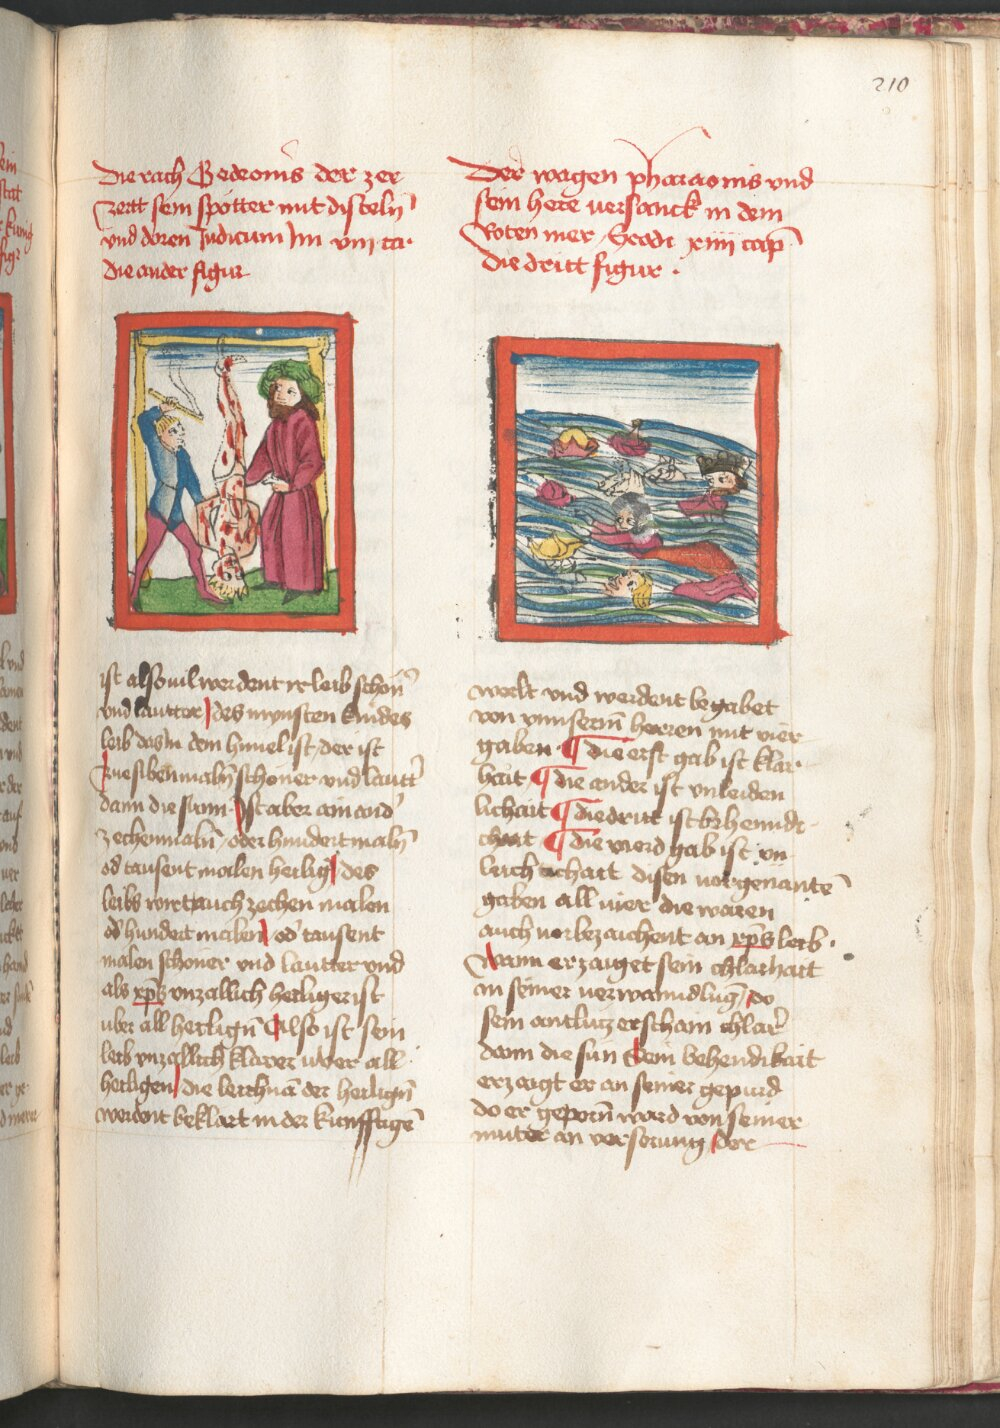 210
Die rach Gedeonis der zer
zertt sein spötter mit disteln
und doren Judicum Im viii ca.
die ander figur
ist also vil werdent ir leib schon
vnd lautter des mynsten kindes
leib das In dem himel ist der ist
siben maln schoner vnd lautt
dann die sunn Ist aber ain and
zechenmaln oder hundert maln
od tausent malen heilig des
leib wirt auch zechen malen
od hundert malen od tausent
malen schoner vnd lautter vnd
als xps vnzallich heiliger ist
uber all heilign Also ist sein
leib vnzallich klarer uber all
heiligen die leichnā der heilign
werdent beklart in der kunfftigē
Der wagen pharaonis und
sein here versanck in dem
Roten mer Exodi xiiii cap
die dritt figur .
welt vnd werdent begabet
von vnnserm herren mit vier
gaben ¶ die erst gab ist klar
hait ¶ die ander ist vnleiden
lichait ¶ die dritt ist behendi
chait ¶ die vierd gab ist vn
disen vorgenantē
gaben all vier die waren
auch vorbezaichent an xps leib .
Wann er zaiget sein chlarhait
in seiner verwanndlug do
sein antlutz erschain chlar
dann die sun Sein behendikait
erzaigt er an seiner gepurd
do er geporn ward von seiner
muter an verserung der